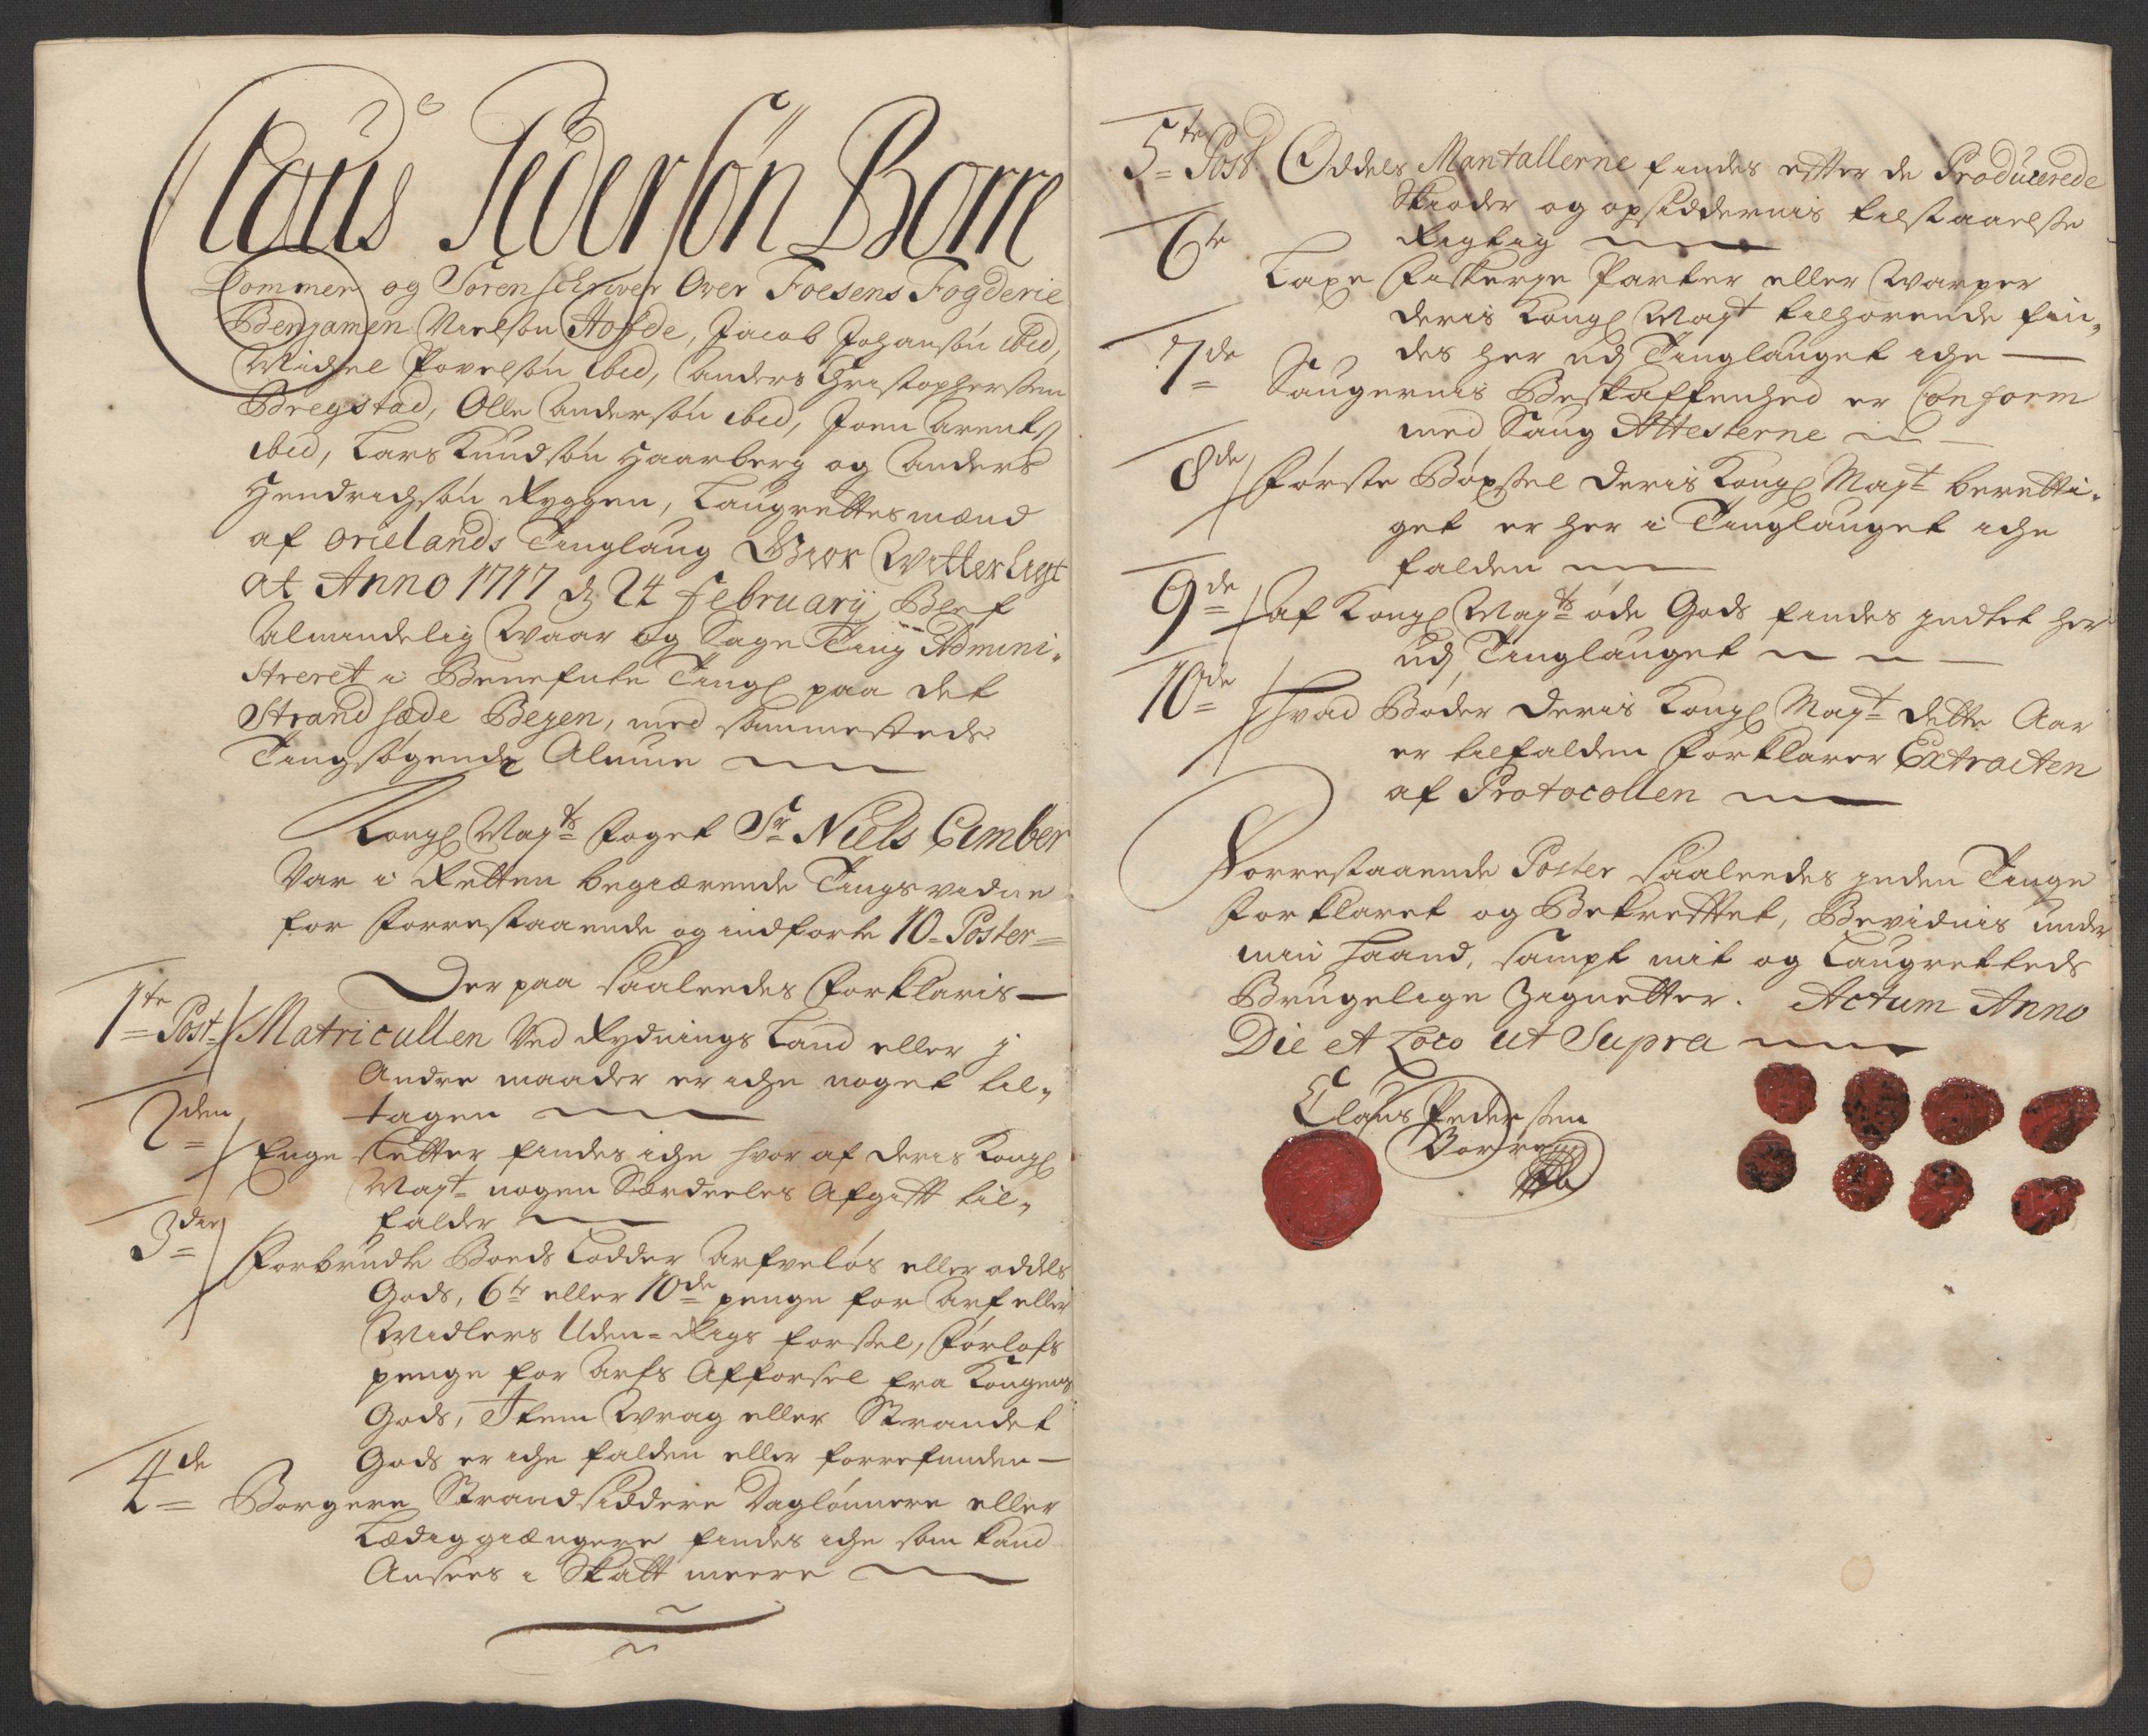 Claus Pedersøn Borre
Dommer og Sorenschriver Over Foesens Fogderie
Benjamen Nielsøn Hofde, Jacob Johansøn ibid,
Michel Povelsøn ibid, Anders Christophersen
Bregstad, Olle Andersøn ibid, Joen Arents
ibid, Lars Knudsøn Haarberg og Anders
Hendrichsøn Ryggen, Laugrettesmænd
af Orielands Tinglaug Giør Witterligt
at Anno 1717 d 24 February, blef
Almindelig Waar og Sage Ting Admini-
streret i Benefnte Tingl paa det
Strandsæde Bejen, med sammesteds
Tingsøgende Almue
Kongl Mayts foget Sr Niels Cimber
Var i Retten begiærende Tingsvidne
for forrestaaende og indførte 10 Poster
Der paa saaleedes forklaris
1te Post Matricullen Ved Rydnings Land eller j
Andre maader er iche noget til-
tagen
2den Enge Sletter findes iche hvor af deris Kongl
Mayt nogen Særdeeles Afgift til-
falder
3die Forbrudte Boeds Lodder Arfveløs eller oddels
Gods, 6te eller 10de penge for Arf eller
Midlers Uden-Rigs førsel, forlofs
penge for Arfs Afførsel fra Kongens
Gods, Item Wrag eller Strandet
Gods er iche falden eller forrefunden
4de Borgere Strandsiddere Daglønnere eller
Lædiggiængere findes iche som kand
Ansees i Skatt meere
5te Post Oddels Mantallerne findes efter de Producerede
Skiøder og opsiddernis tilstaaelse
Rigtig
6te Laxe Fiskerje Parter eller Warper
deris Kongl Mayt tilhørende fin-
des her udj Tinglauget iche
7de Saugernis Beskaffenhed er Conform
med Saug Attesterne
8de Første Bøxsel Deris Kongl Mayt beretti-
get er her i Tinglauget iche
falden
9de Af Kongl Mayts øde Gods findes jndtet her
udj Tinglauget
10de Hvad Bøder Deris Kongl Mayt dette Aar
er tilfalden forklarer Extracten
af Protocollen
Forrestaaende Poster saaleedes jnden Tinge
forklaret og Bekreftet, Bevidnis under
min haand, sampt mit og Laugretteds
Brugelige Zignetter. Actum Anno
Die et Loco ut Supra
Claus Pedersen
Borre